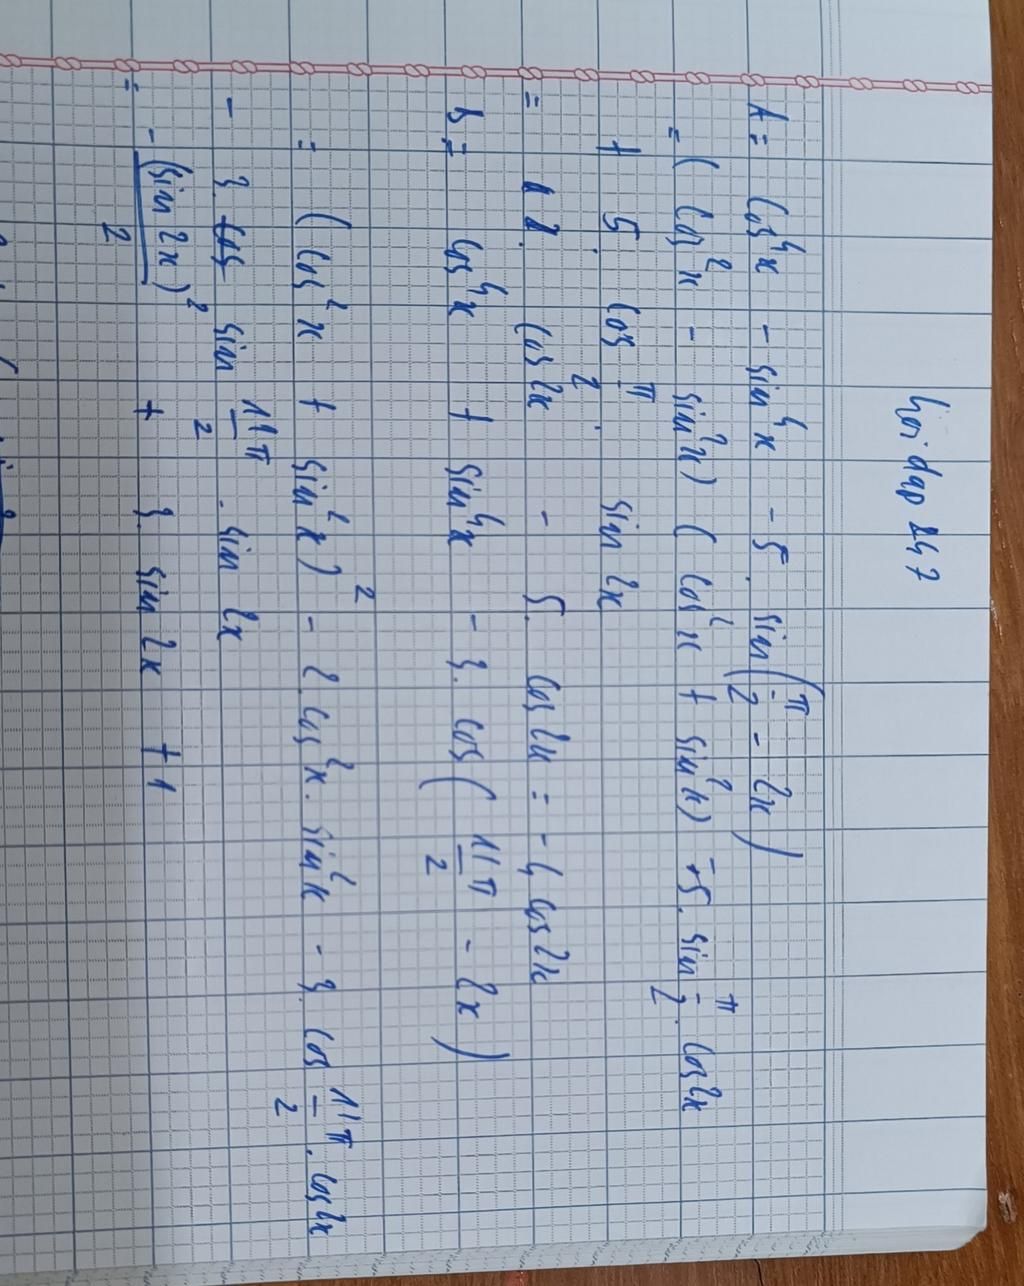 hoi dap 247
A = cos⁴x - sin⁴x - 5. sin(π/2 - 2x)
= (cos²x - sin²x) (cos²x + sin²x) - 5. sin π/2 . cos2x
+ 5. cos π/2 . sin 2x
= 1. cos2x - 5. cos2x = -4 cos2x
b = cos⁴x + sin⁴x - 3. cos(11π/2 - 2x)
= (cos²x + sin²x)² - 2 cos²x. sin²x - 3. cos 11π/2 . cos2x
- 3. sin 11π/2 . sin 2x
= -(sin 2x)²/2 + 3. sin 2x + 1